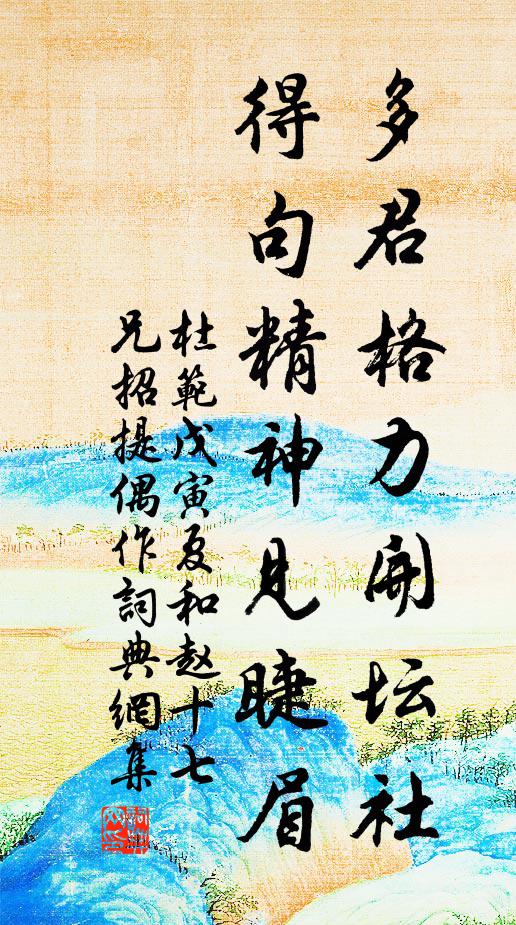 多君格力開坛社
得句精神見睫眉
杜範戊寅夏和趙十七
兄招提偶作詞典網集